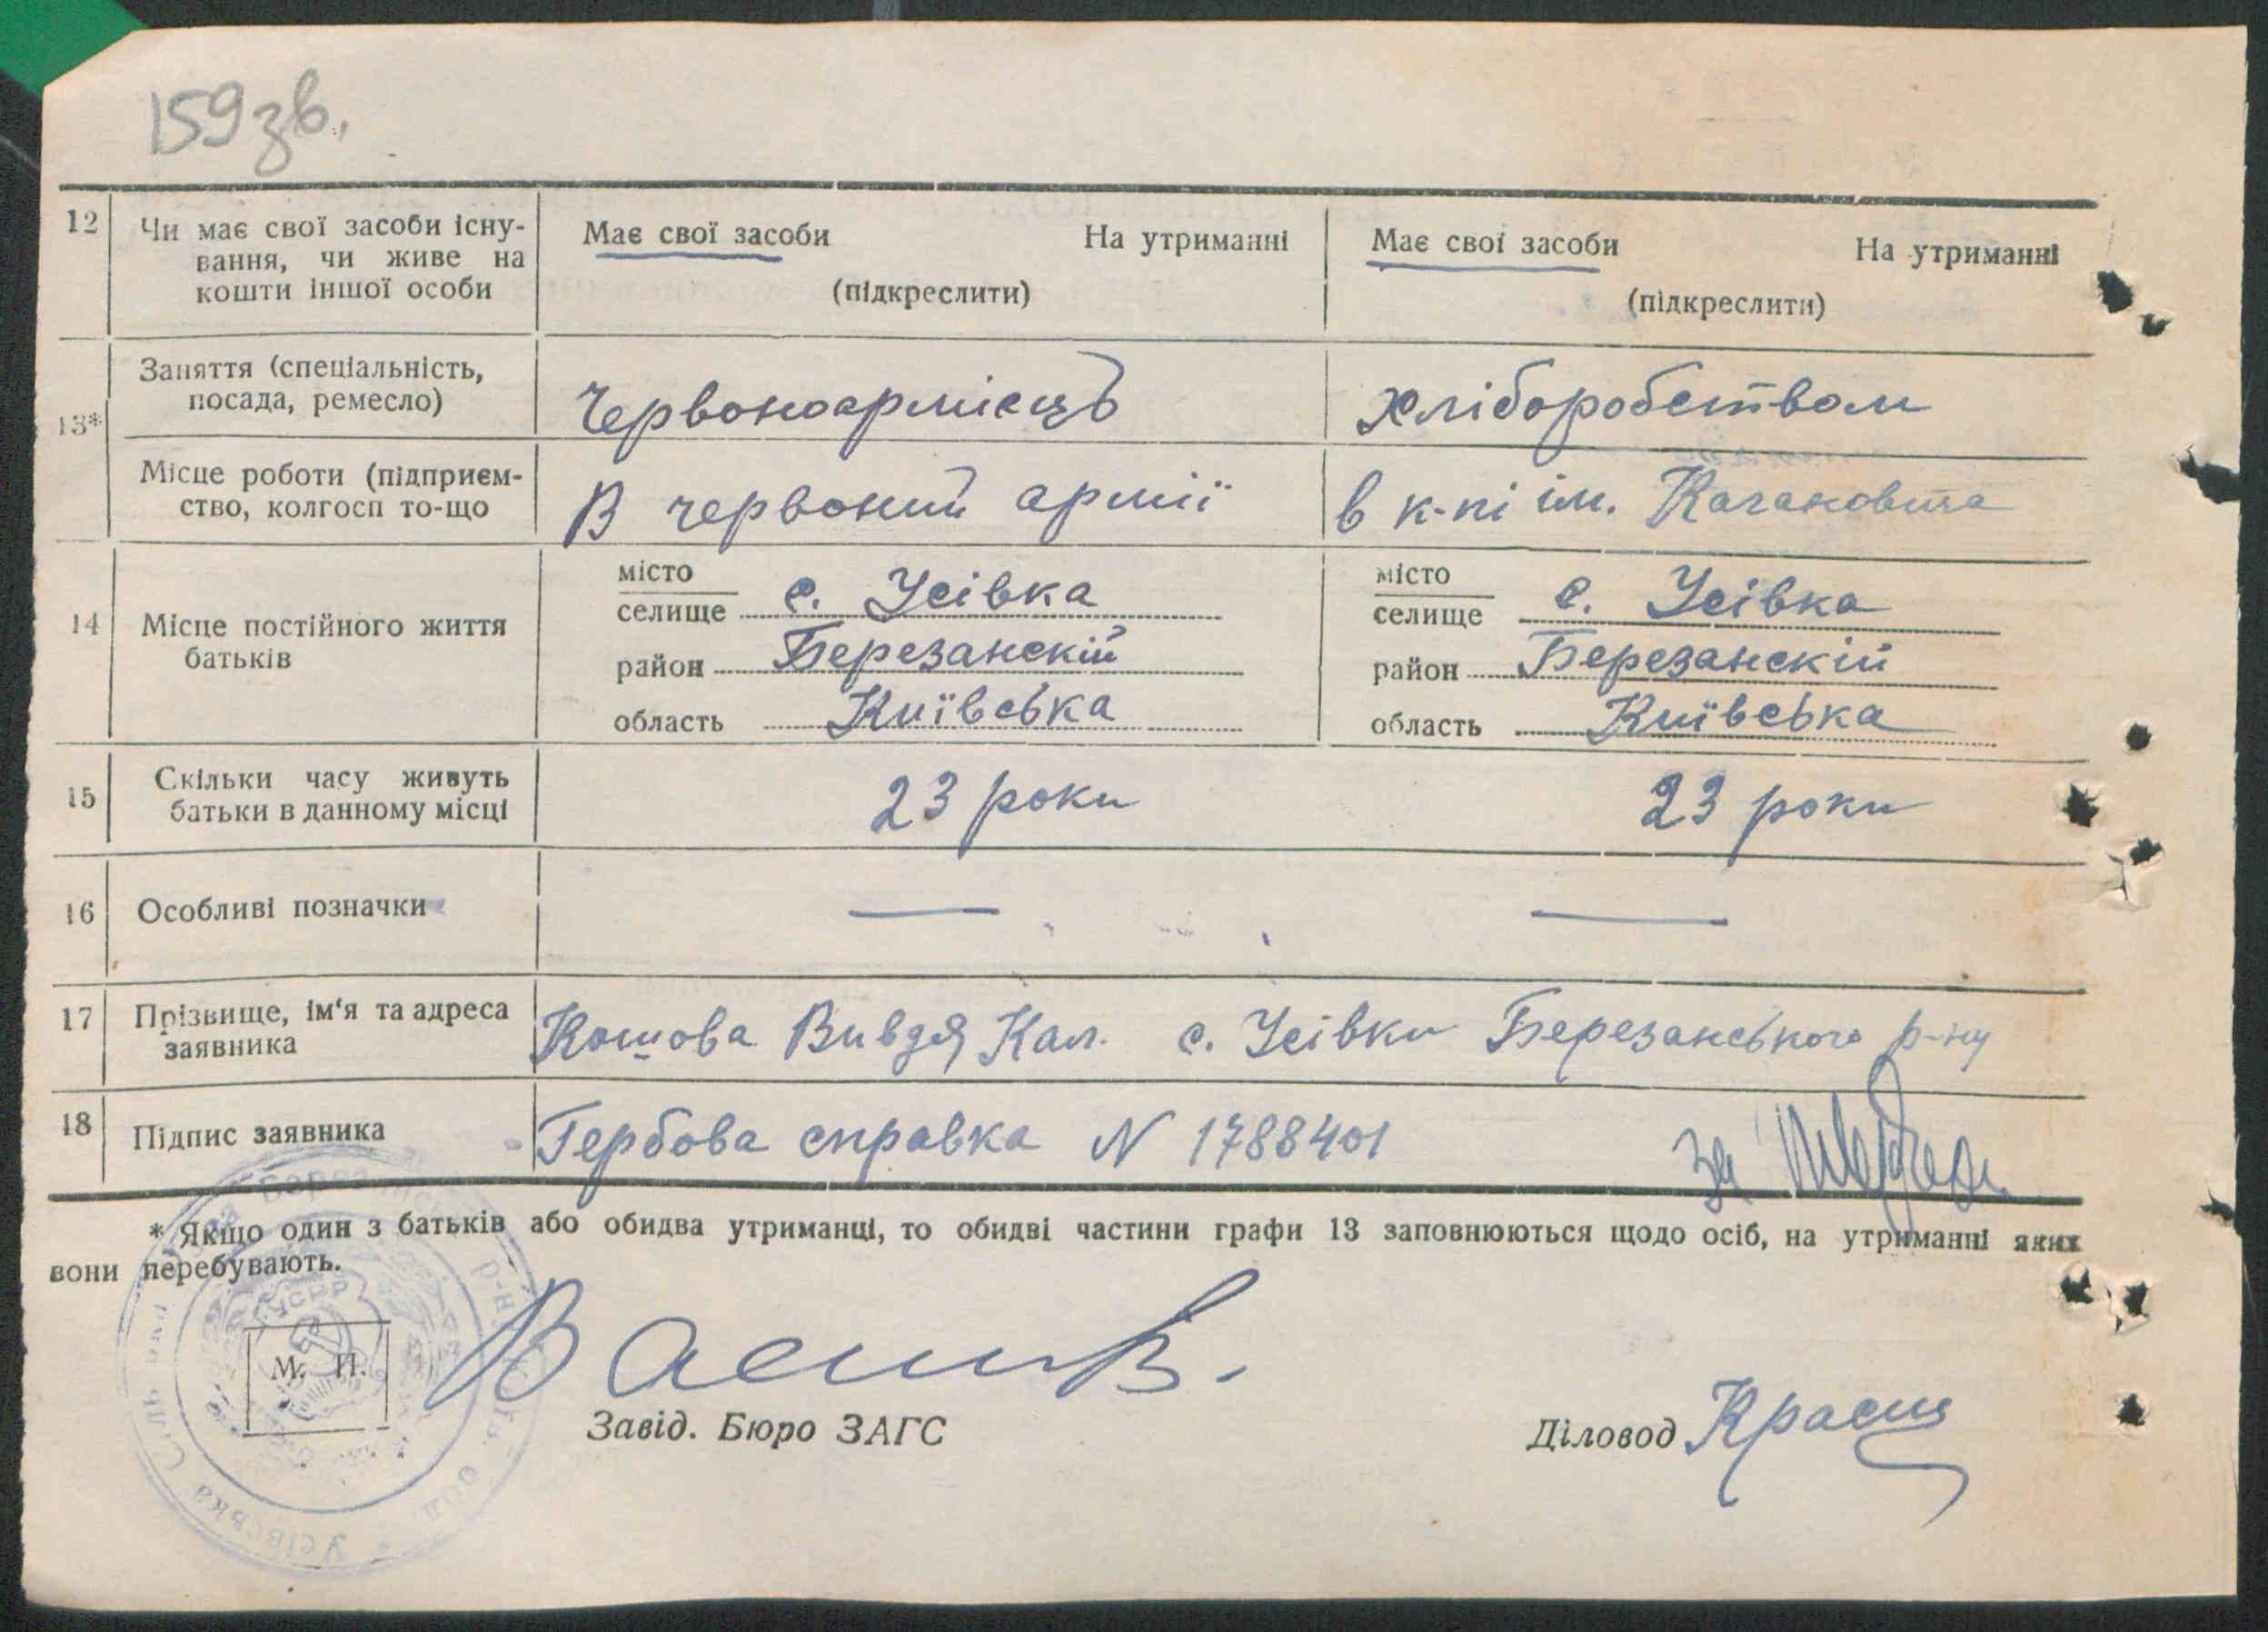 159 зв.
12 Чи має свої засоби існу- Має свої засоби На утриманні Має свої засоби На утриманні
вання, чи живе на
кошти іншої особи (підкреслити) (підкреслити)
13* Заняття (спеціальність,
посада, ремесло) Червоноармієць хліборобством
Місце роботи (підприєм-
ство, колгосп то-що В червоний армії в к-пі ім. Кагановича
14 Місце постійного життя
батьків
місто
селище с. Усівка
район Березанскій
область Київська
місто
селище с. Усівка
район Березанскій
область Київська
15 Скільки часу живуть
батьки в данному місці 23 роки 23 роки
16 Особливі позначки — —
17 Прізвище, ім'я та адреса
заявника Кошова Вивдя Кал. с. Усівки Березанського р-ну
18 Підпис заявника Гербова справка N 1788401 за
* Якщо один з батьків або обидва утриманці, то обидві частини графи 13 заповнюються щодо осіб, на утриманні яких
вони перебувають.
УСРР
М. П.
Завід. Бюро ЗАГС
Діловод
Усівська